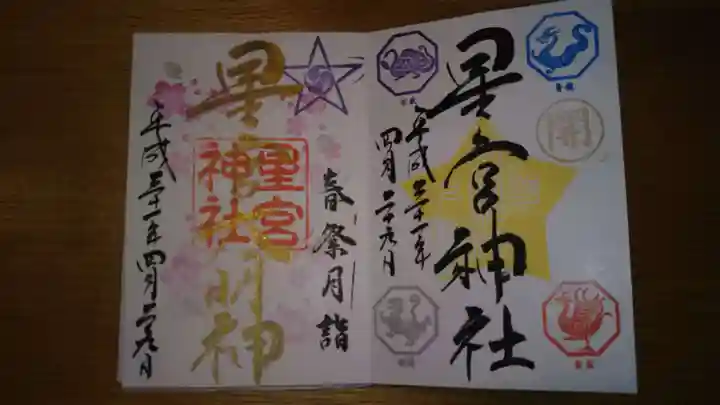 星宮神社
平成三十一年
四月二十九日
開
春祭月詣
星宮
神社
明神
平成三十一年四月二十九日